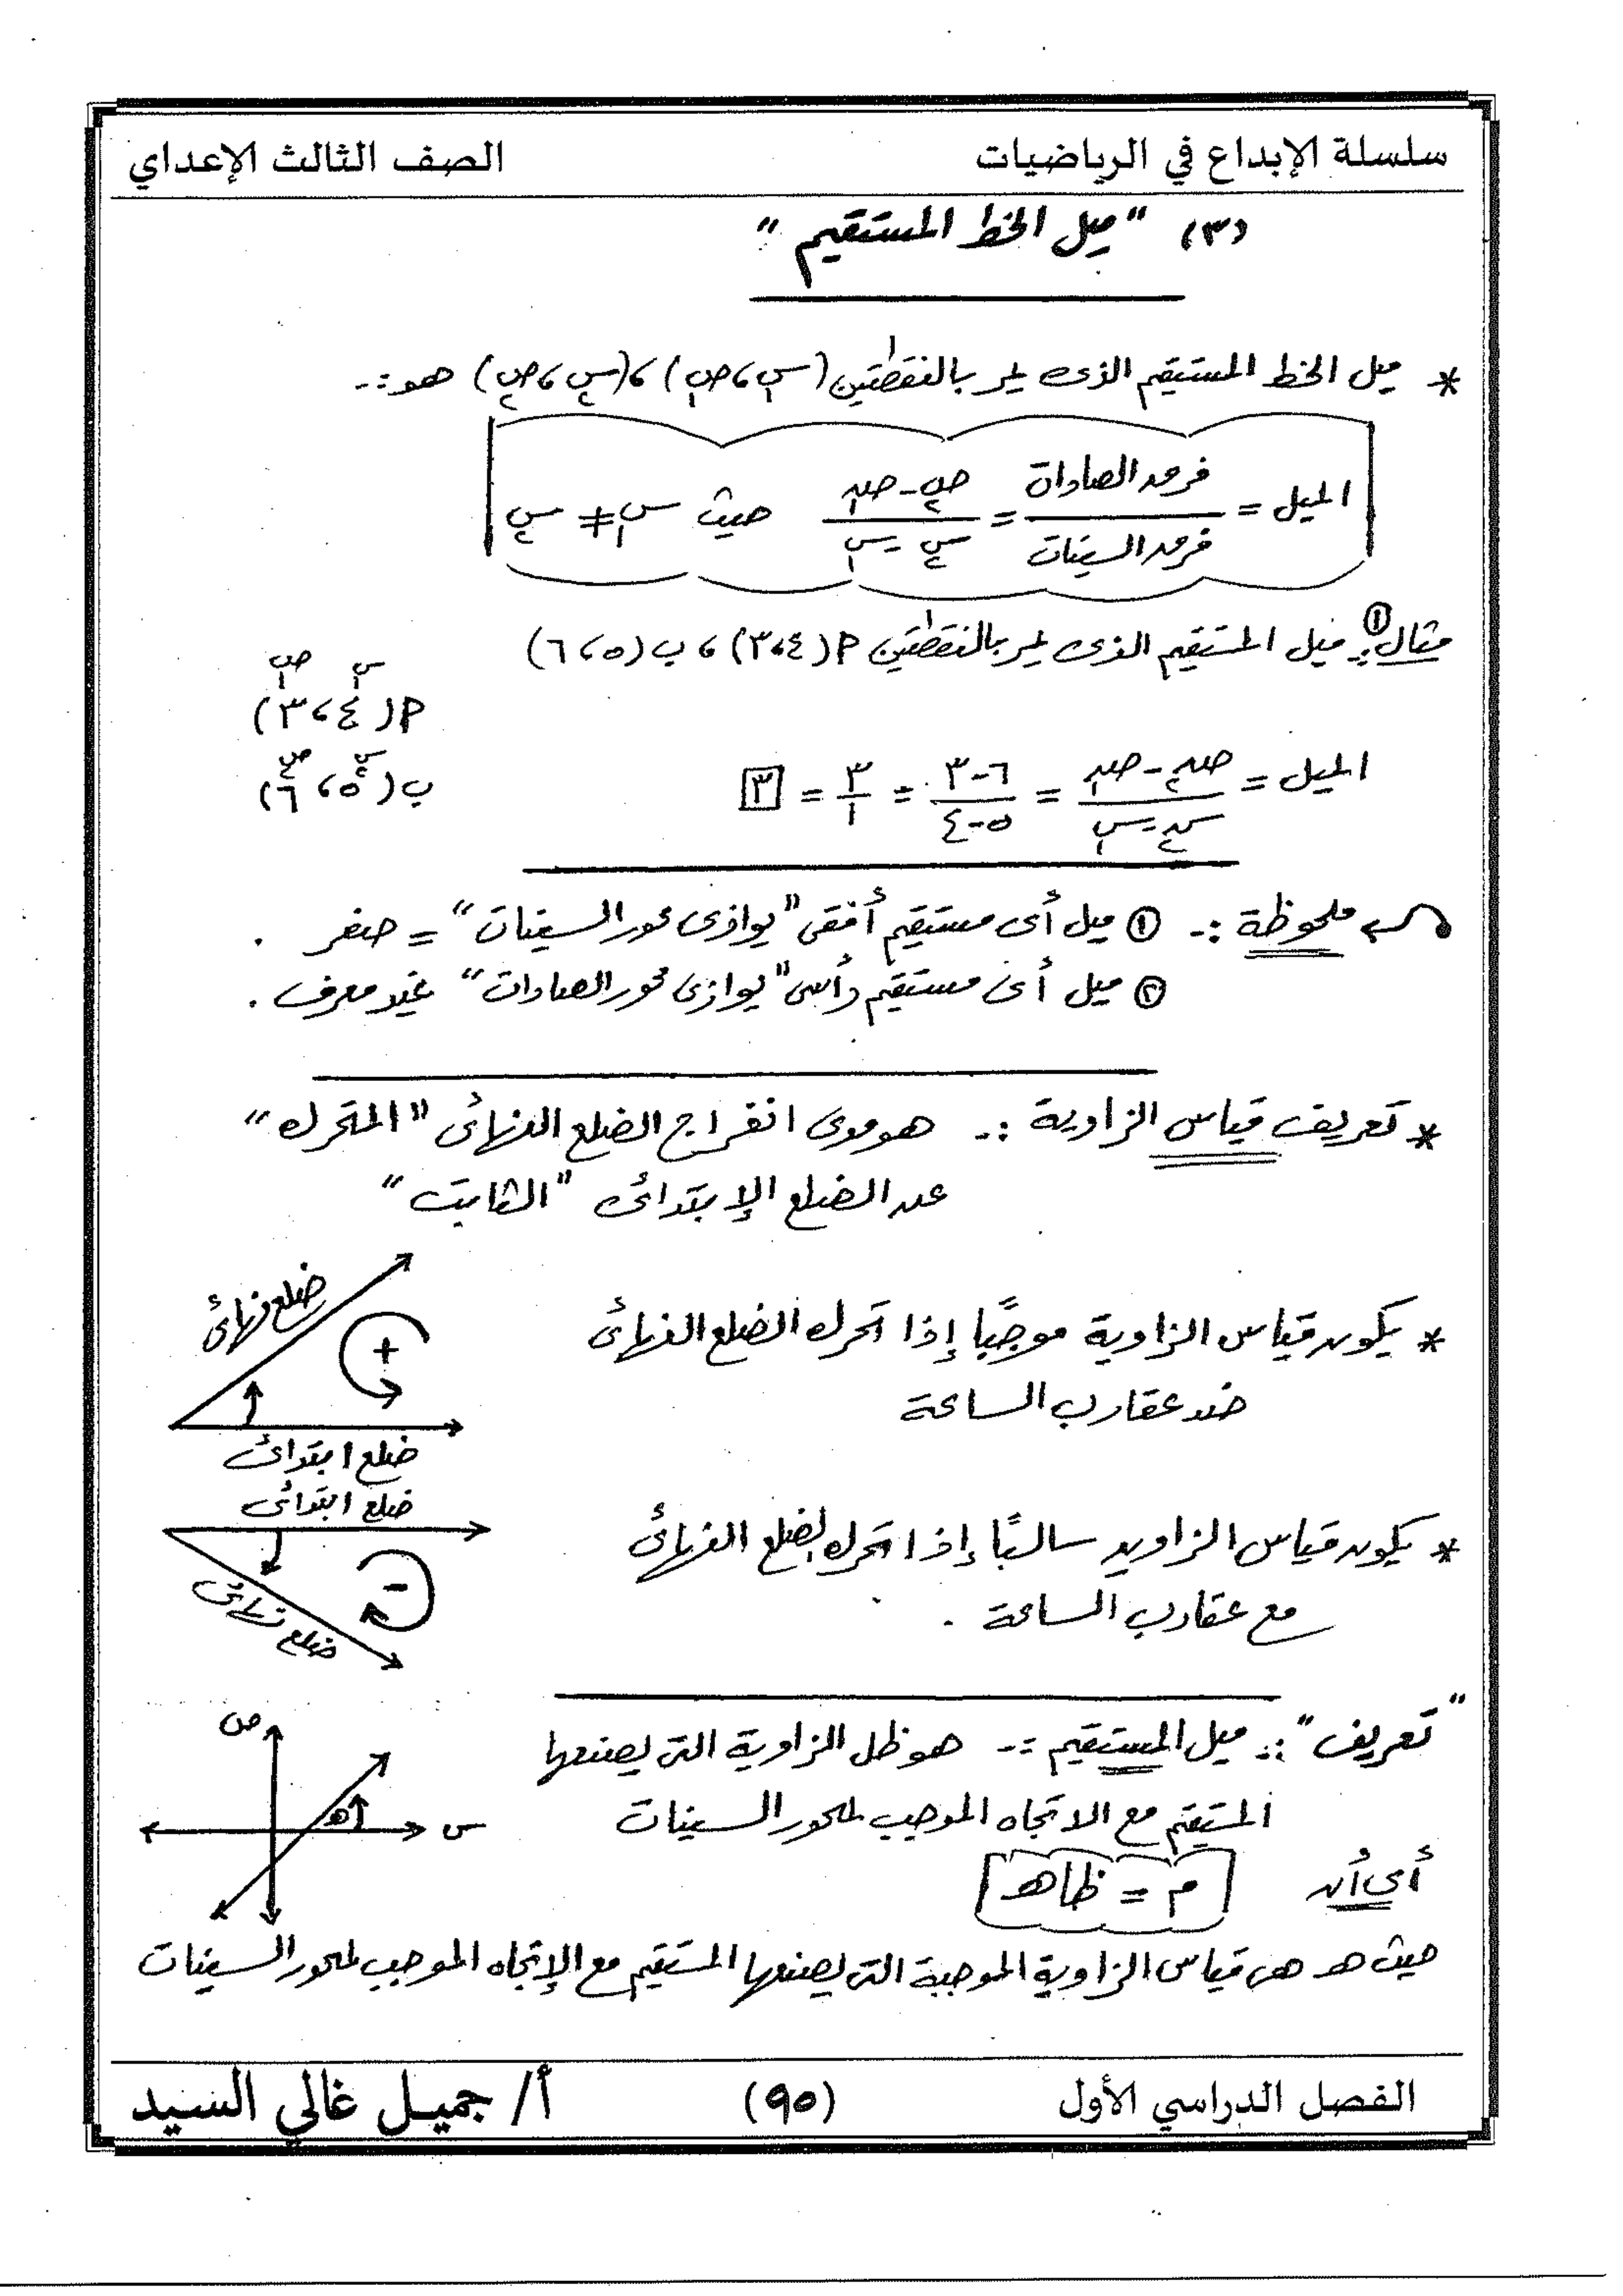 سلسلة الإبداع في الرياضيات
الصف الثالث الإعداي
(٣) "ميل الخط المستقيم"
* ميل الخط المستقيم الذى يمر بالنقطتين (س١ ، ص١) ، (س٢ ، ص٢) هو :-
الميل = فرق الصادات / فرق السينات = ص٢ - ص١ / س٢ - س١ حيث س١ ≠ س٢
مثال ١ :- ميل المستقيم الذى يمر بالنقطتين أ (٤ ، ٣) ، ب (٥ ، ٦)
س١ ص١
أ (٤ ، ٣)
س٢ ص٢
ب (٥ ، ٦)
الميل = ص٢ - ص١ / س٢ - س١ = ٦ - ٣ / ٥ - ٤ = ٣ / ١ = ٣
ملحوظة :- ١ ميل أى مستقيم أفقى "يوازى محور السينات" = صفر .
٢ ميل أى مستقيم رأسى "يوازى محور الصادات" غير معرف .
* تعريف قياس الزاوية :- هو مدى انفراج الضلع النهائى "المتحرك"
عن الضلع الإبتدائى "الثابت"
* يكون قياس الزاوية موجبًا إذا تحرك الضلع النهائى
ضد عقارب الساعة
ضلع نهائى
+
ضلع ابتدائى
* يكون قياس الزاوية سالبًا إذا تحرك الضلع النهائى
مع عقارب الساعة .
ضلع ابتدائى
-
ضلع نهائى
"تعريف" :- ميل المستقيم :- هو ظل الزاوية التى يصنعها
المستقيم مع الاتجاه الموجب لمحور السينات
أى أن م = ظا هـ
ص
هـ
س
حيث هـ هى قياس الزاوية الموجبة التى يصنعها المستقيم مع الإتجاه الموجب لمحور السينات
الفصل الدراسي الأول
(٩٥)
أ/ جميل غالي السيد